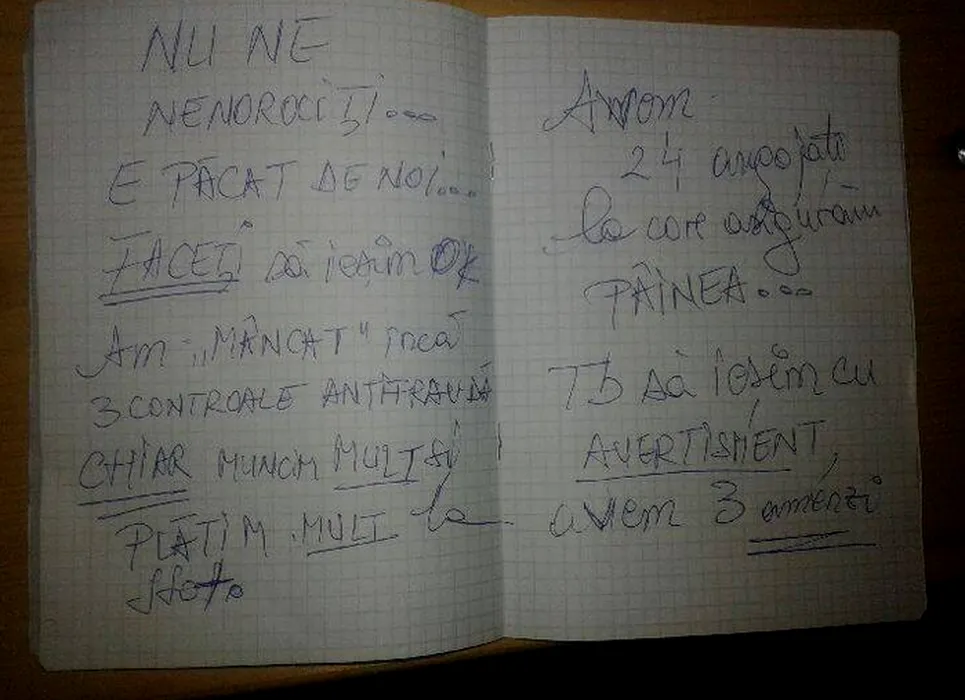 NU NE
NENOROCIȚI...
E PĂCAT DE NOI...
FACEȚI să ieșim OK
Am „MÂNCAT" încă
3 CONTROALE ANTIFRAUDĂ
CHIAR MUNCIM MULT și
PLĂTIM MULT la
Stat.
Avem
24 angajați
la care asigurăm
PÂINEA...
Tb să ieșim cu
AVERTISMENT,
avem 3 amenzi